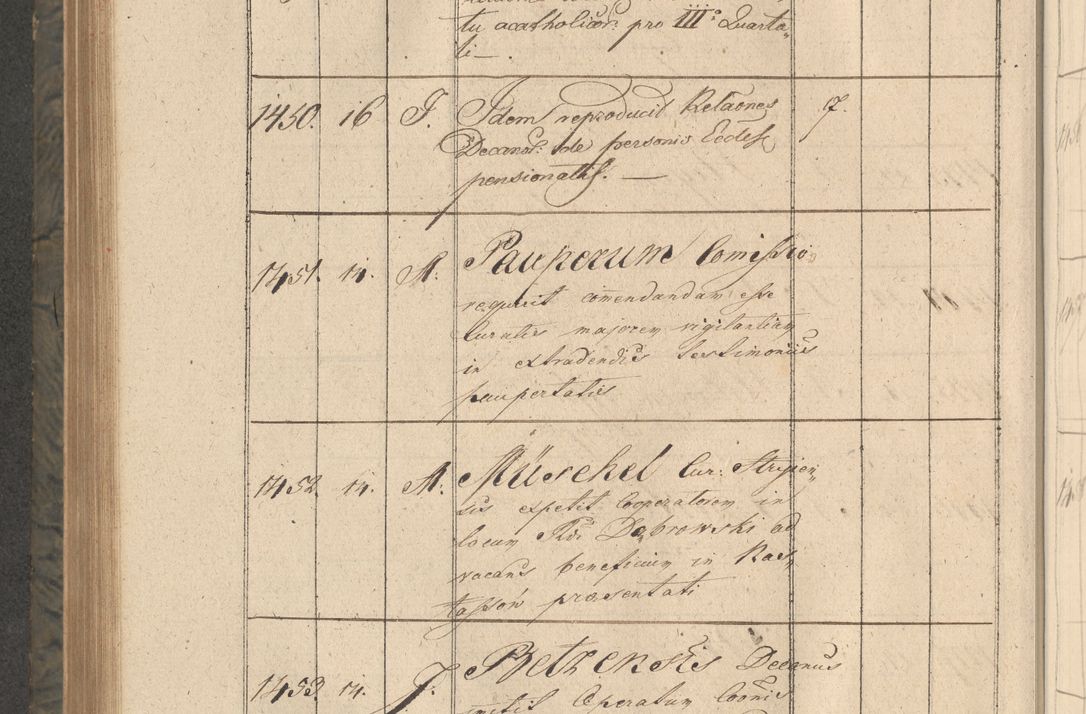 tu acatholicor: pro III° Quarta„
li —.
1450. 16 J. Idem reproducit Relaones 7.
Decanal: de personis Eccles
pensionatis. —
1451. 14. M. Pauperum Comissio
requirit comendandam esse
Curatis majorem vigilantiam
in extradendis testimoniis
paupertatis
1452. 14. M. Müschel Cur: Stryien„
sis expetit Cooperatorem in
locum Rdi Dąbrowski ad
vacans beneficium in Ras„
tassów praesentati
1453. 14. J. Decanus
mittit Operatum